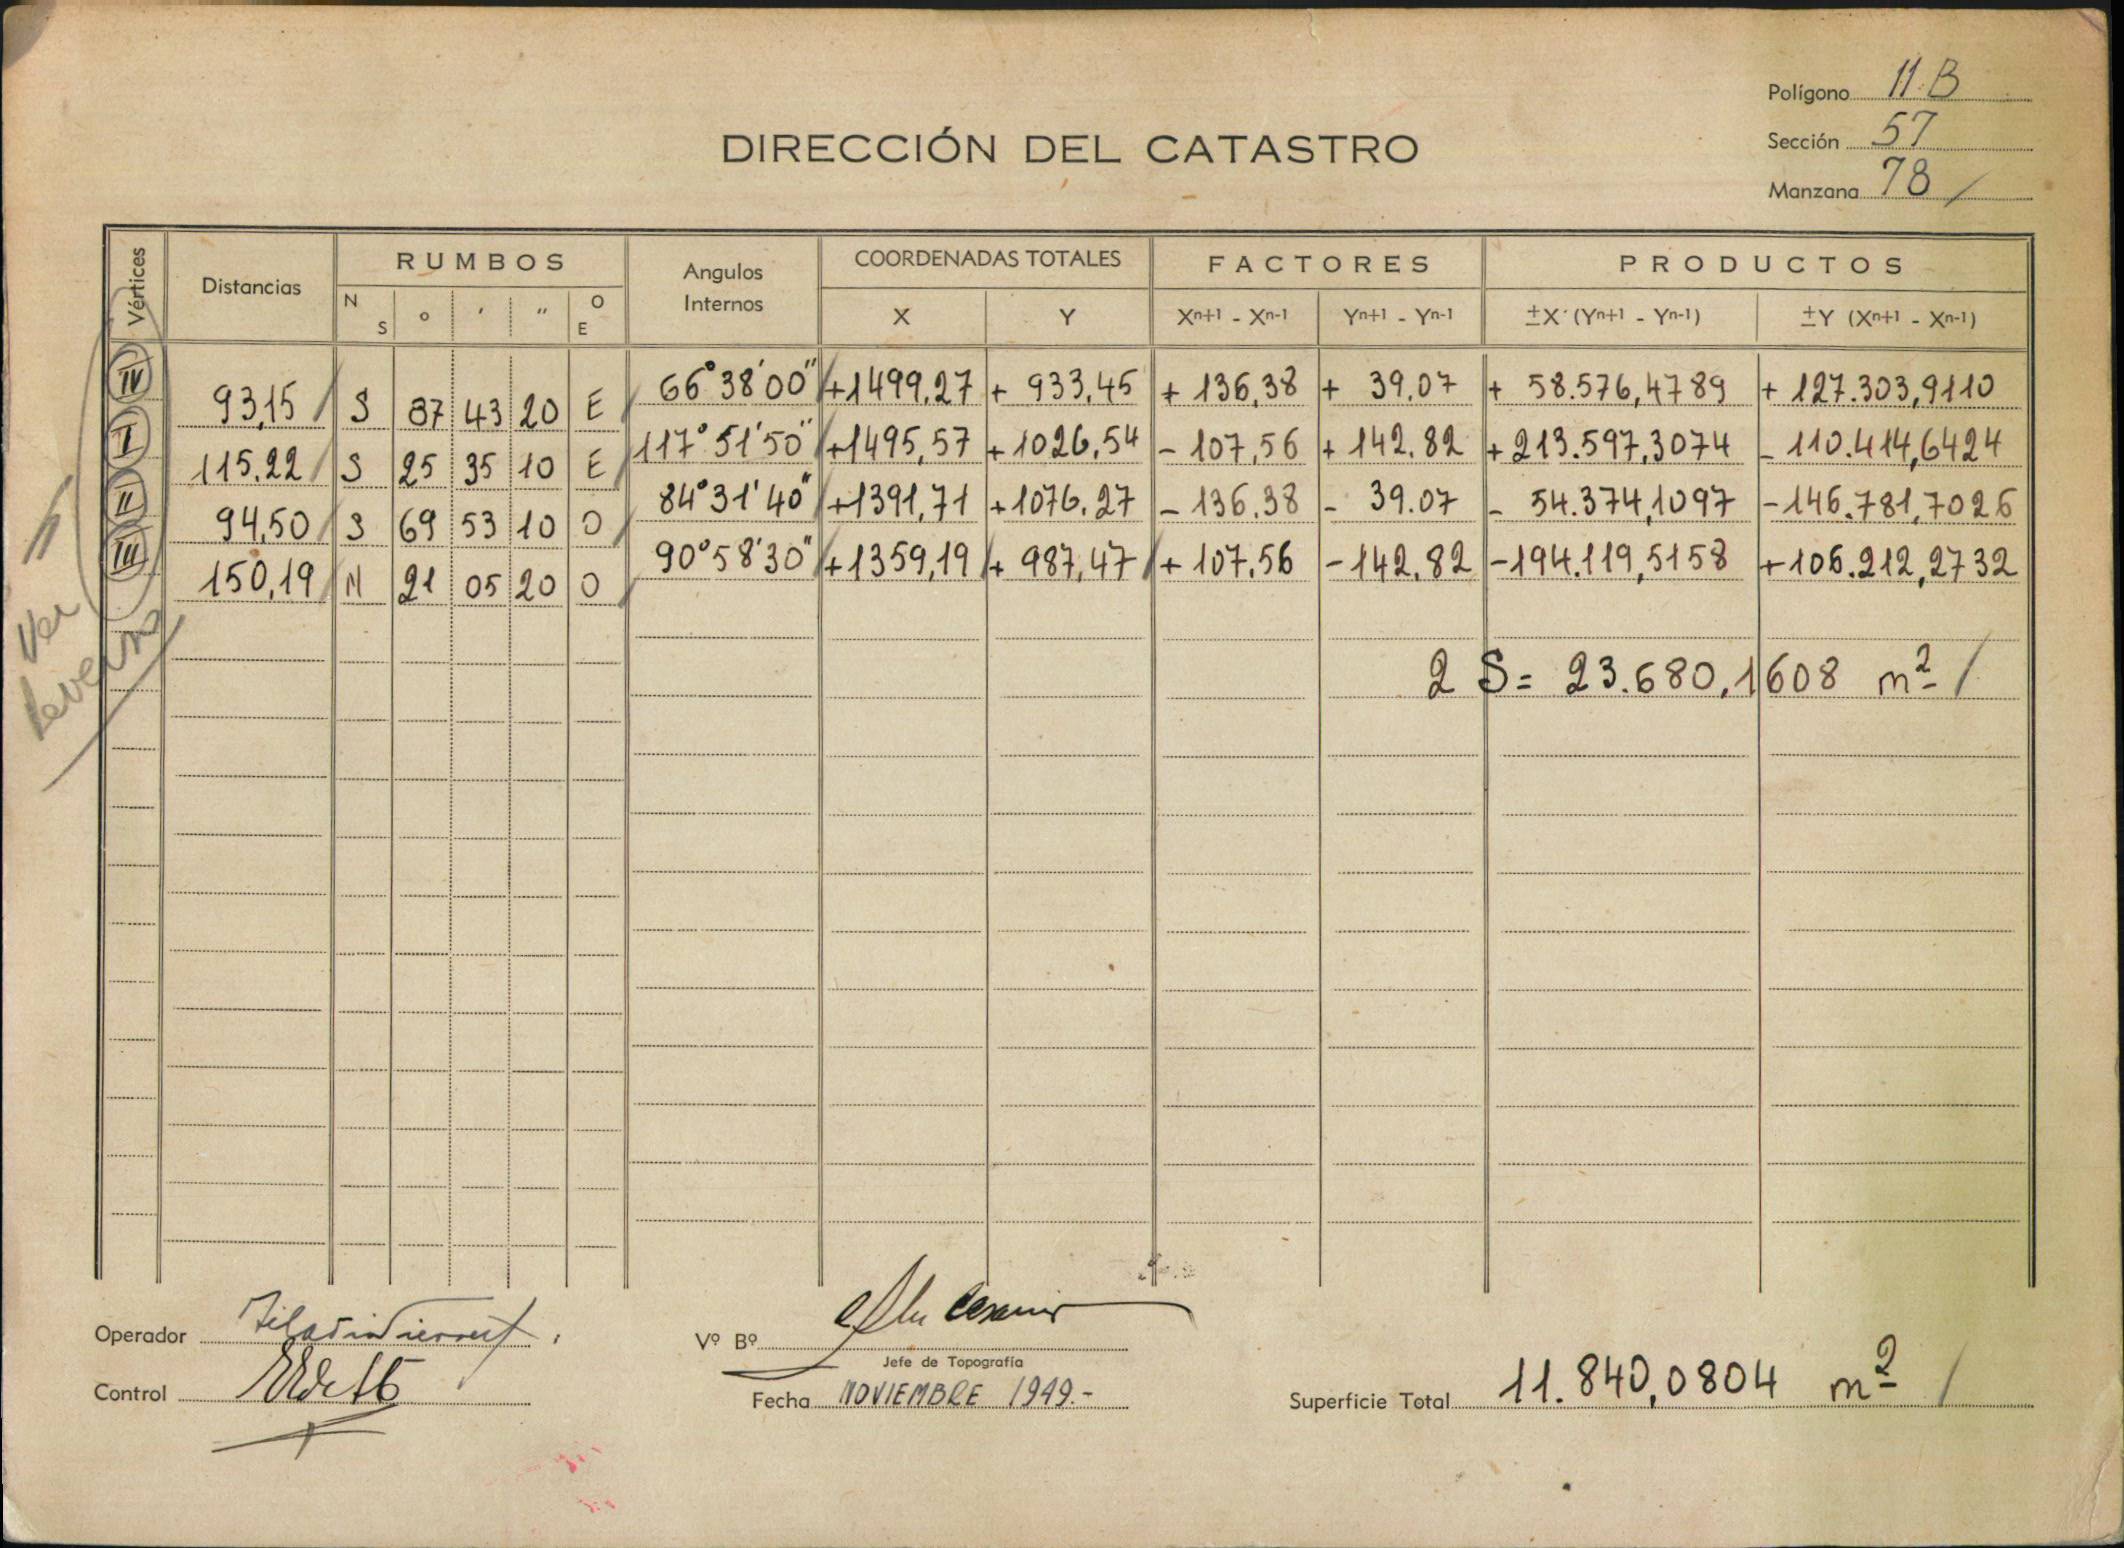 Polígono 11-B
DIRECCIÓN DEL CATASTRO
Sección 57
Manzana 78 /
Vértices Distancias RUMBOS N S ° ′ ″ O E Angulos Internos COORDENADAS TOTALES X Y FACTORES Xn+1 - Xn-1 Yn+1 - Yn-1 PRODUCTOS ±X (Yn+1 - Yn-1) ±Y (Xn+1 - Xn-1)
IV 66°38'00" +1499,27 + 933,45 + 136,38 + 39.07 + 58.576,4789 + 127.303,9110
93,15 S 87 43 20 E
I 117°51'50" +1495,57 +1026,54 - 107,56 + 142.82 +213.597,3074 - 110.414,6424
115.22 S 25 35 10 E
II 84°31'40" +1391,71 +1076.27 - 136.38 - 39.07 - 54.374,1097 -146.781,7026
94,50 S 69 53 10 O
III 90°58'30" +1359,19 + 987,47 + 107,56 -142.82 -194.119,5158 +106.212,2732
150,19 N 21 05 20 O
Ver
Reverso
2 S= 23.680,1608 m2 /
Operador
Vº Bº
Jefe de Topografía
Control
Fecha NOVIEMBRE 1949.-
Superficie Total 11.840,0804 m2 /